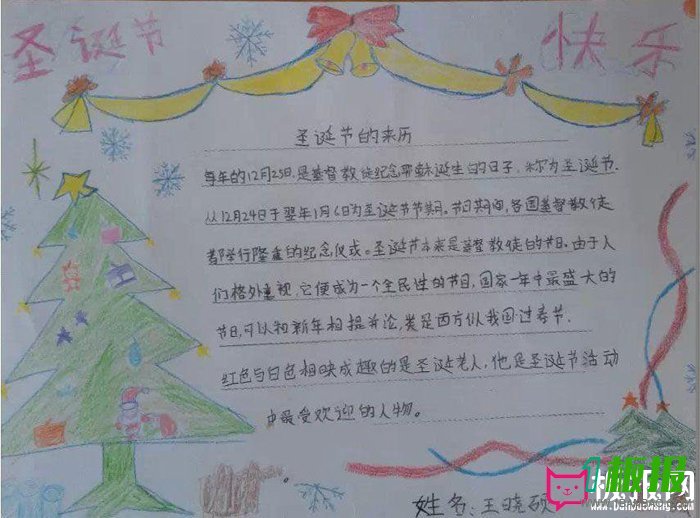 圣诞节 快乐
圣诞节的来历
每年的12月25日,是基督教徒纪念耶稣诞生的日子,称为圣诞节.
从12月24日于翌年1月6日为圣诞节节期。节日期间,各国基督教徒
都举行隆重的纪念仪式。圣诞节本来是基督教徒的节日,由于人
们格外重视,它便成为一个全民性的节日,国家一年中最盛大的
节日,可以和新年相提并论,类是西方似我国过春节.
红色与白色相映成趣的是圣诞老人,他是圣诞节活动
中最受欢迎的人物。
姓名:王晓硕
板报网